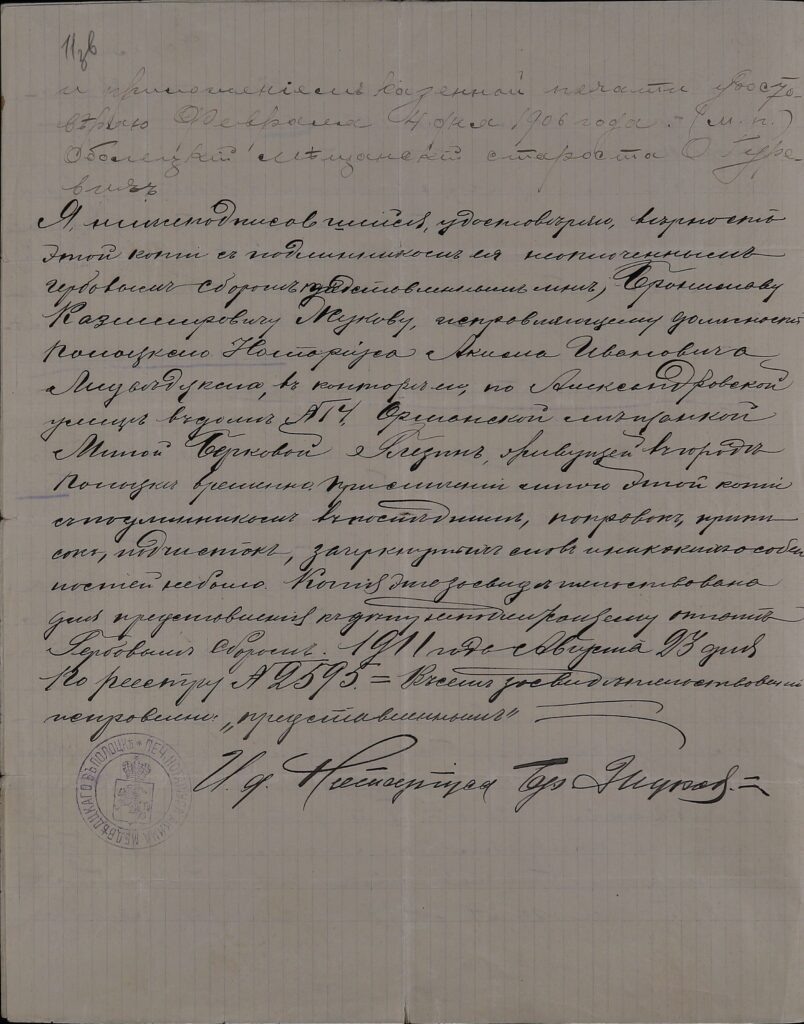 11 об
и приложеніемъ казенной печати удосто-
вѣряю Февраля 4 дня 1906 года. (м. п.)
Оболецкій Мѣщанскій староста О. Гуре-
вичъ
Я, нижеподписавшійся, удостовѣряю, вѣрность
этой копіи съ подлинникомъ ея неоплаченнымъ
гербовымъ сборомъ представленнымъ мнѣ, Брониславу
Казиміровичу Жукову, исправляющему должность
Полоцкаго Нотаріуса Акима Ивановича
Медвѣдцкаго, въ конторѣ его, по Александровской
улицѣ въ домѣ № 14, Оршанской мѣщанкой
Миной Берковой Глезинъ, живущей въ городѣ
Полоцкѣ временно. При сличеніи мною этой копіи
съ подлинникомъ въ послѣднемъ, поправокъ, припи
сокъ, подчистокъ, зачеркнутыхъ словъ и никакихъ особен
ностей не было. Копія эта засвидѣтельствована
для представленія къ дѣлу неподлежащему оплатѣ
Гербовымъ Сборомъ. 1911 года Августа 23 дня
По реестру № 2595. = Въ семъ засвидѣтельствованіи
исправлено: „представленнымъ"
И. д. Нотаріуса Бр Жуковъ. =
ПЕЧ. НОТАРІУСА АКИМА МЕДВѢДЦКАГО ВЪ ПОЛОЦКѢ